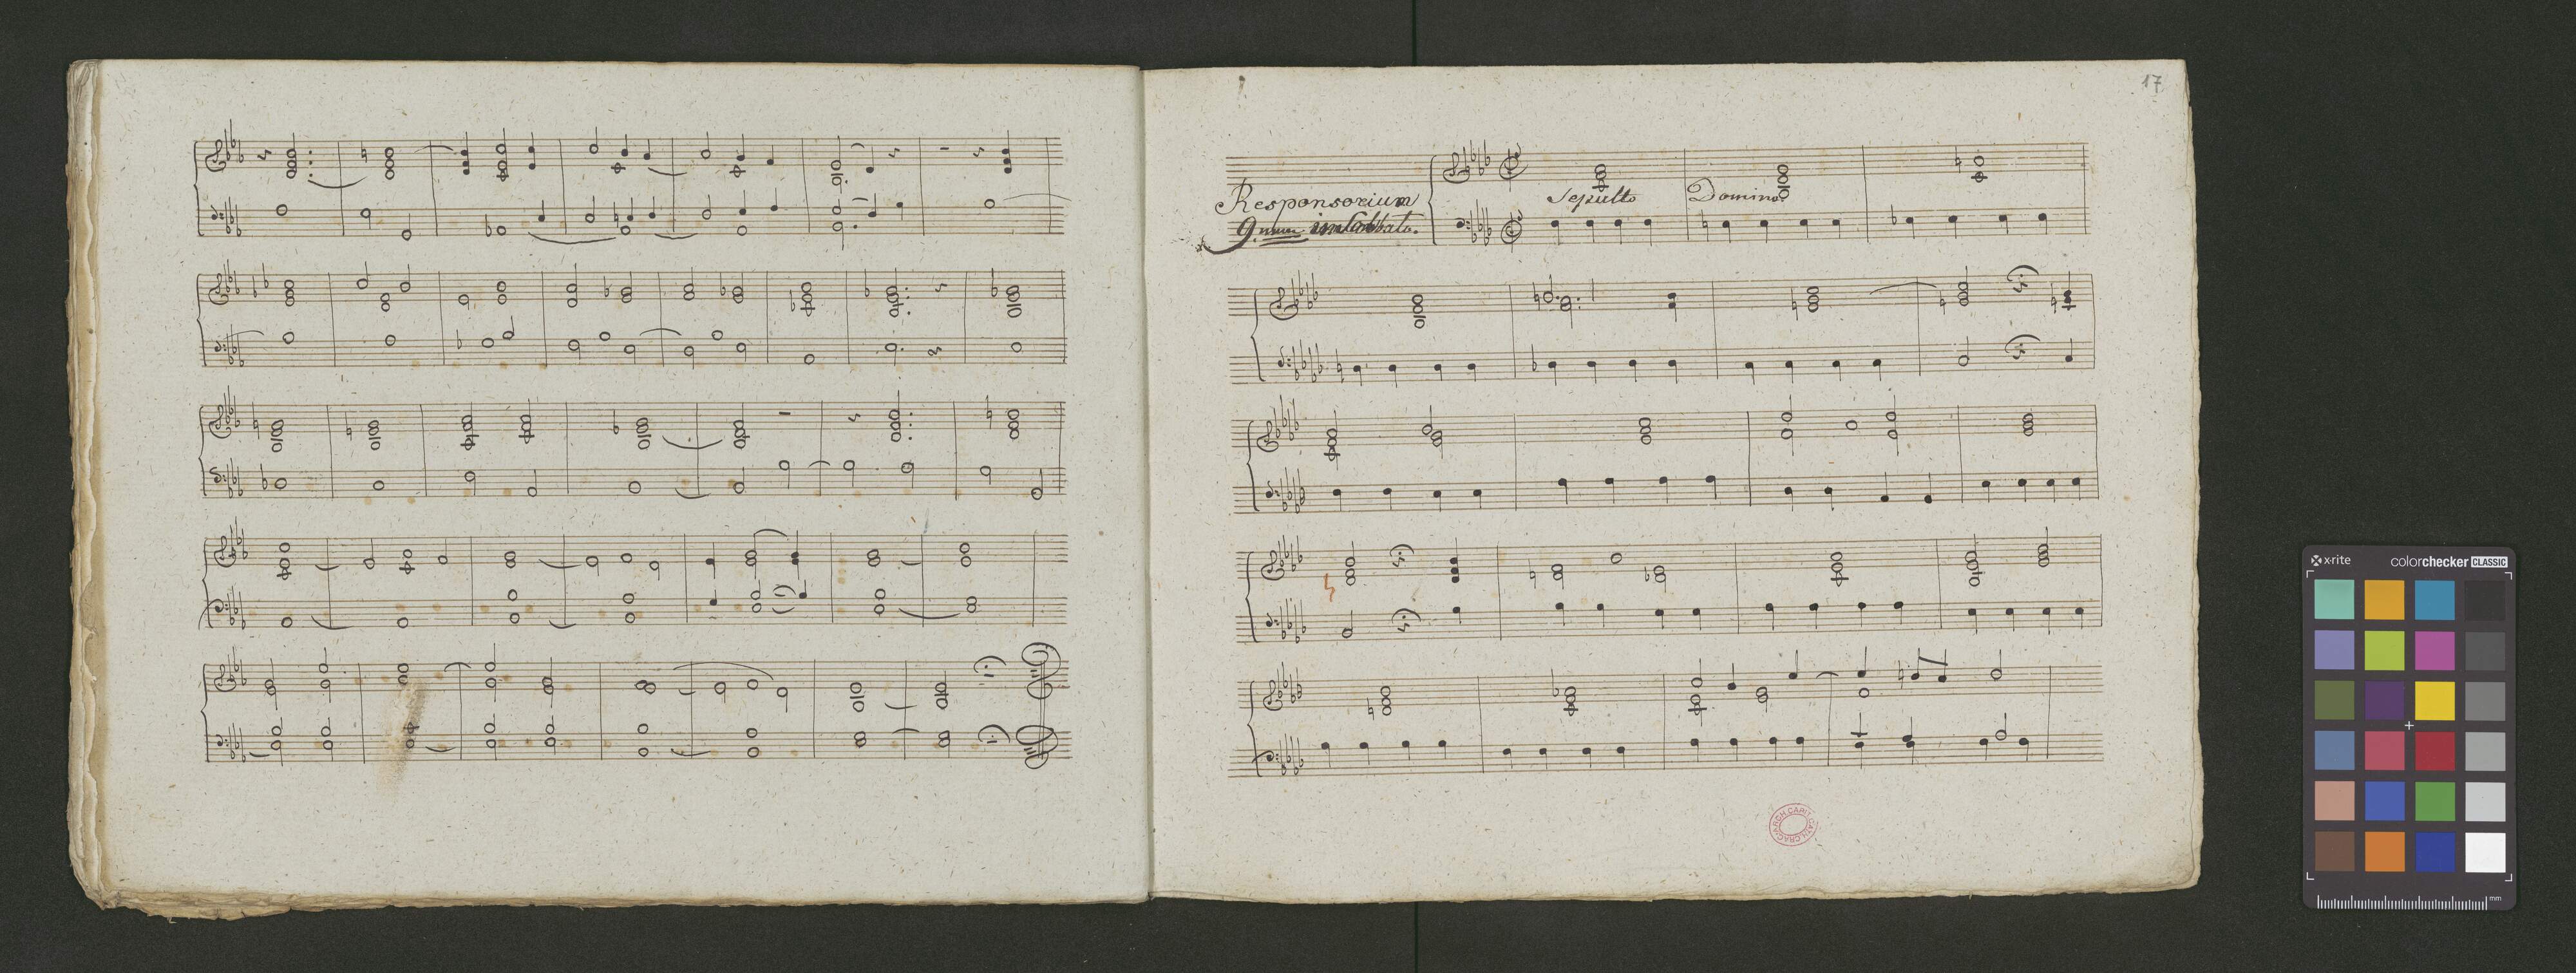 17
Responsorium
9num in Sabbato.
Sepulto Domino
x-rite
colorchecker CLASSIC
mm